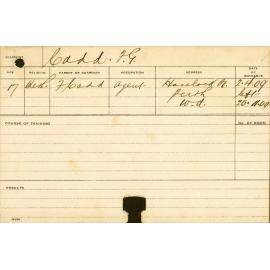 STUDENT Cadd. F. G.
AGE RELIGION PARENT OR GUARDIAN OCCUPATION ADDRESS DATE OF ENTRANCE
17 F Cadd Agent Havelock St. 2.4.09
Perth left
W.A. 20.11.09
COURSE OF TRAINING No. OF ROOM
RESULTS